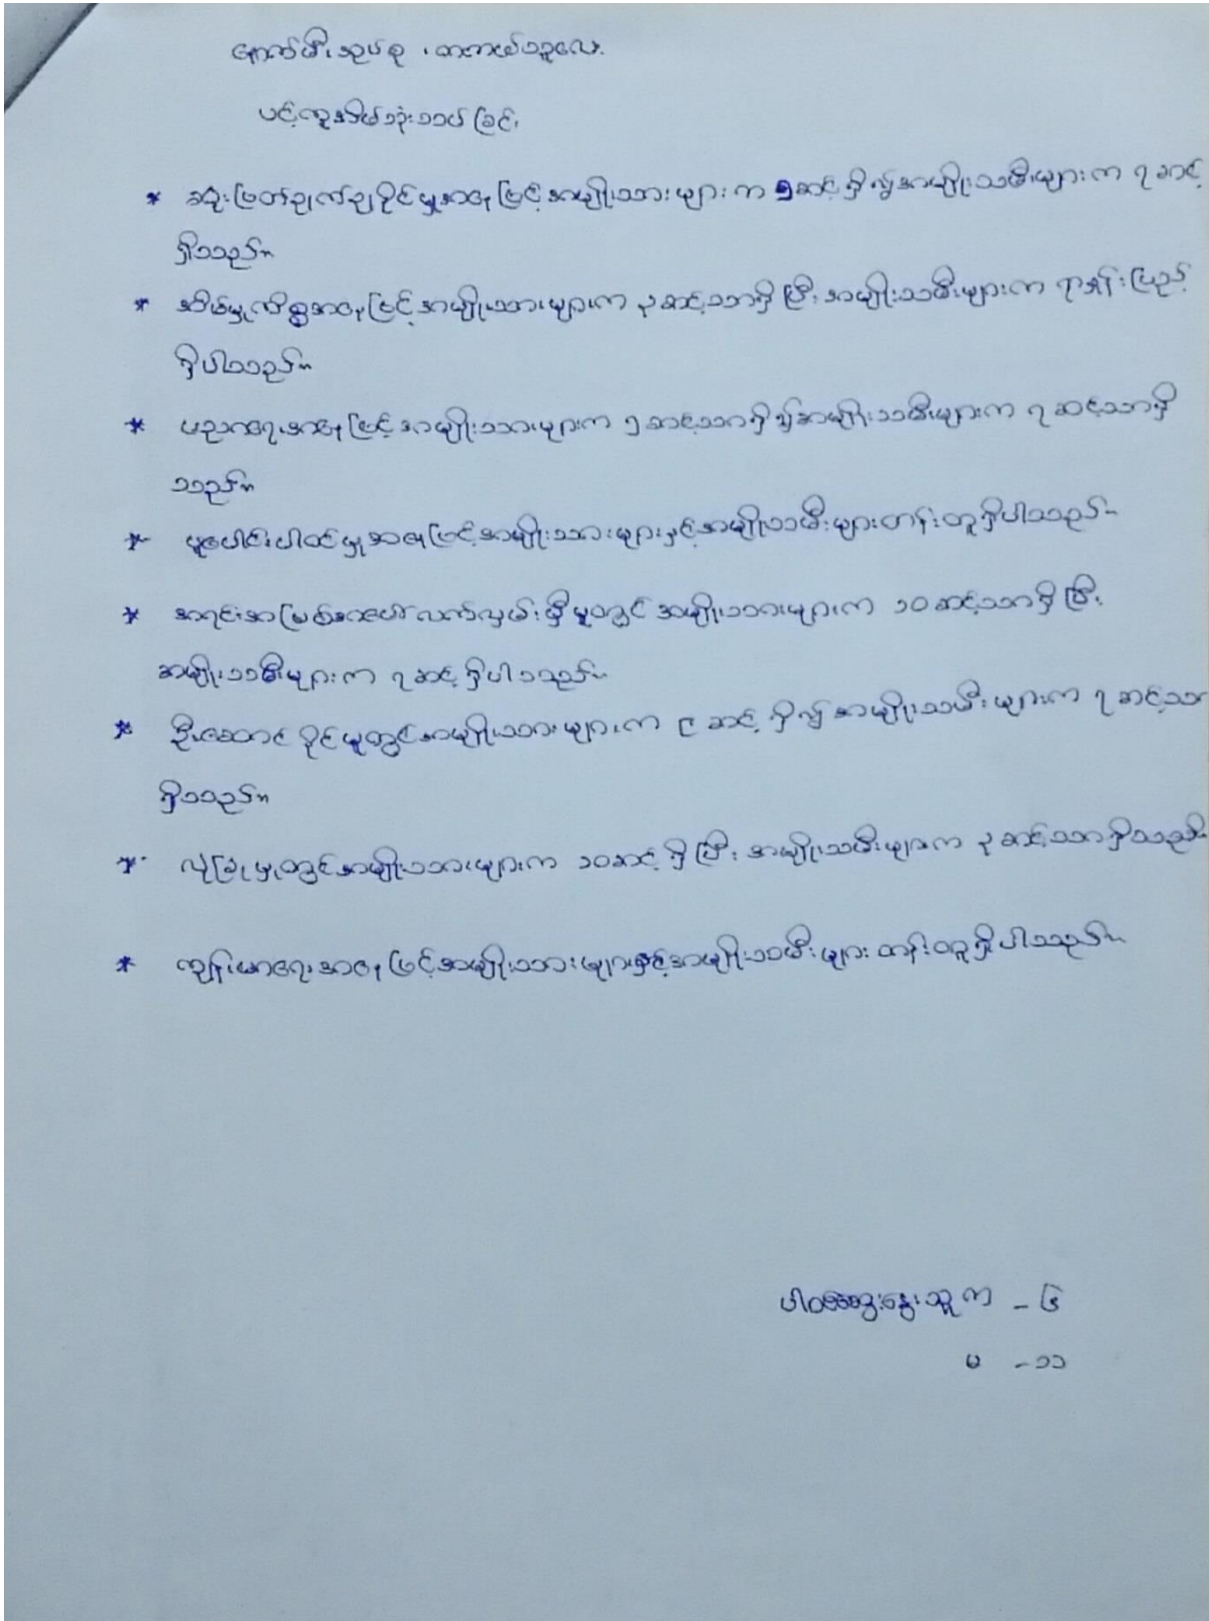 နောက်မီးသုပ်စု ၊
ပင့်ကူအိမ်သုံးသပ်ခြင်း
* ဆုံးဖြတ်ချက်ချပိုင်မှုအနေဖြင့် အမျိုးသားများက ၅ဆင့်ရှိ၍ အမျိုးသမီးများက ၇ ဆင့်
ရှိသည်။
* အိမ်မှုကိစ္စအနေဖြင့် အမျိုးသားများက ၃ ဆင့်သာရှိပြီး အမျိုးသမီးများက ရာနှုန်းပြည့်
ရှိပါသည်။
* ပညာရေးအနေဖြင့် အမျိုးသားများက ၅ ဆင့်သာရှိ၍ အမျိုးသမီးများက ၇ ဆင့်သာရှိ
သည်။
* ပူးပေါင်းပါဝင်မှုအနေဖြင့် အမျိုးသားများနှင့် အမျိုးသမီးများတန်းတူရှိပါသည်။
* အရင်းအမြစ်အပေါ် လက်လှမ်းမှီမှုတွင် အမျိုးသားများက ၁၀ ဆင့်သာရှိပြီး
အမျိုးသမီးများက ၇ ဆင့်ရှိပါသည်။
* ဦးဆောင်ပိုင်မှုတွင် အမျိုးသားများက ၉ ဆင့် ရှိ၍ အမျိုးသမီးများက ၇ ဆင့်သာ
ရှိသည်။
* လုံခြုံမှုတွင် အမျိုးသားများက ၁၀ဆင့် ရှိပြီး အမျိုးသမီးများက ၃ ဆင့်သာရှိသည်။
* ကျန်းမာရေးအနေဖြင့် အမျိုးသားများနှင့် အမျိုးသမီးများ တန်းတူရှိပါသည်။
ပါဝင်ဆွေးနွေးသူ က - ၆
မ - ၁၁